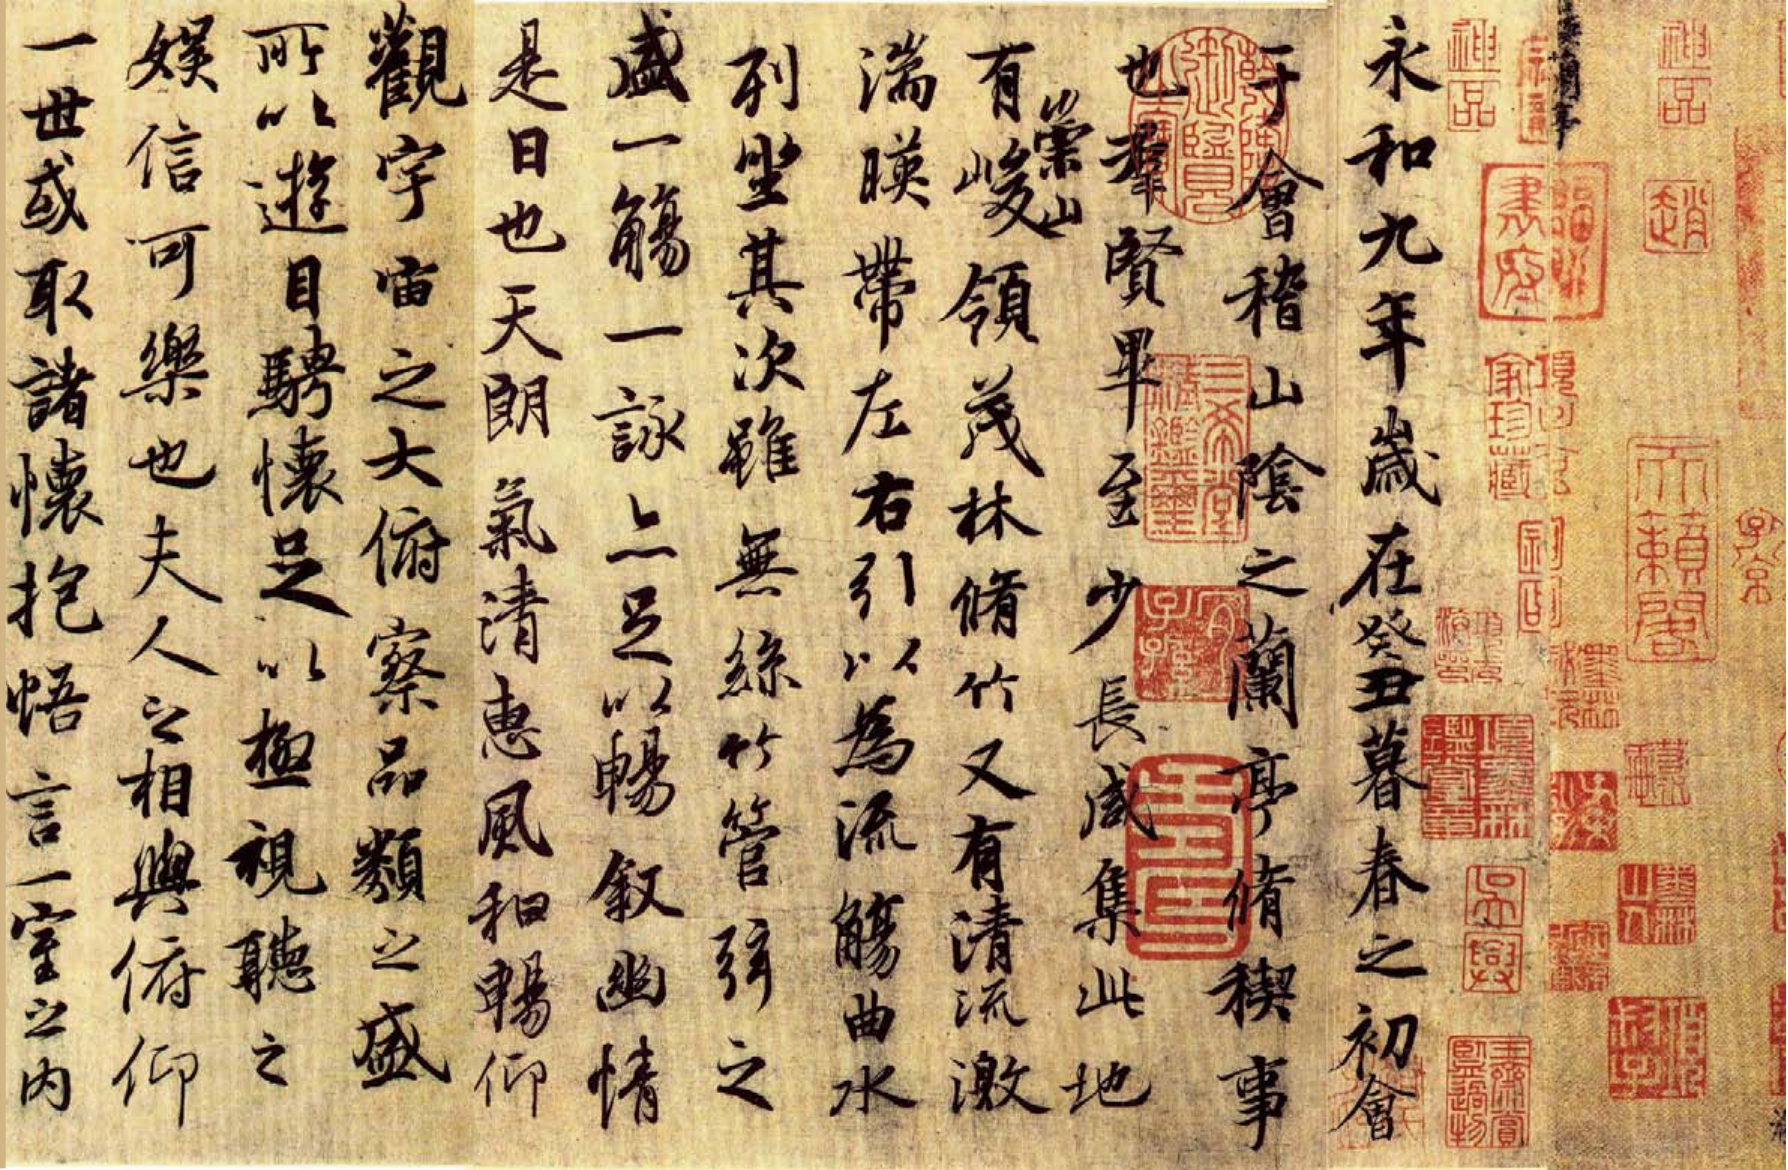 神品
趙
天籟閣
子京
神品
永和九年歲在癸丑暮春之初會
于會稽山陰之蘭亭脩稧事
也羣賢畢至少長咸集此地
三希堂精鑑璽
宜子孫
崇山
有峻領茂林脩竹又有清流激
湍暎帶左右引以為流觴曲水
列坐其次雖無絲竹管弦之
盛一觴一詠亦足以暢敘幽情
是日也天朗氣清惠風和暢仰
觀宇宙之大俯察品類之盛
所以遊目騁懷足以極視聽之
娛信可樂也夫人之相與俯仰
一世或取諸懷抱悟言一室之內